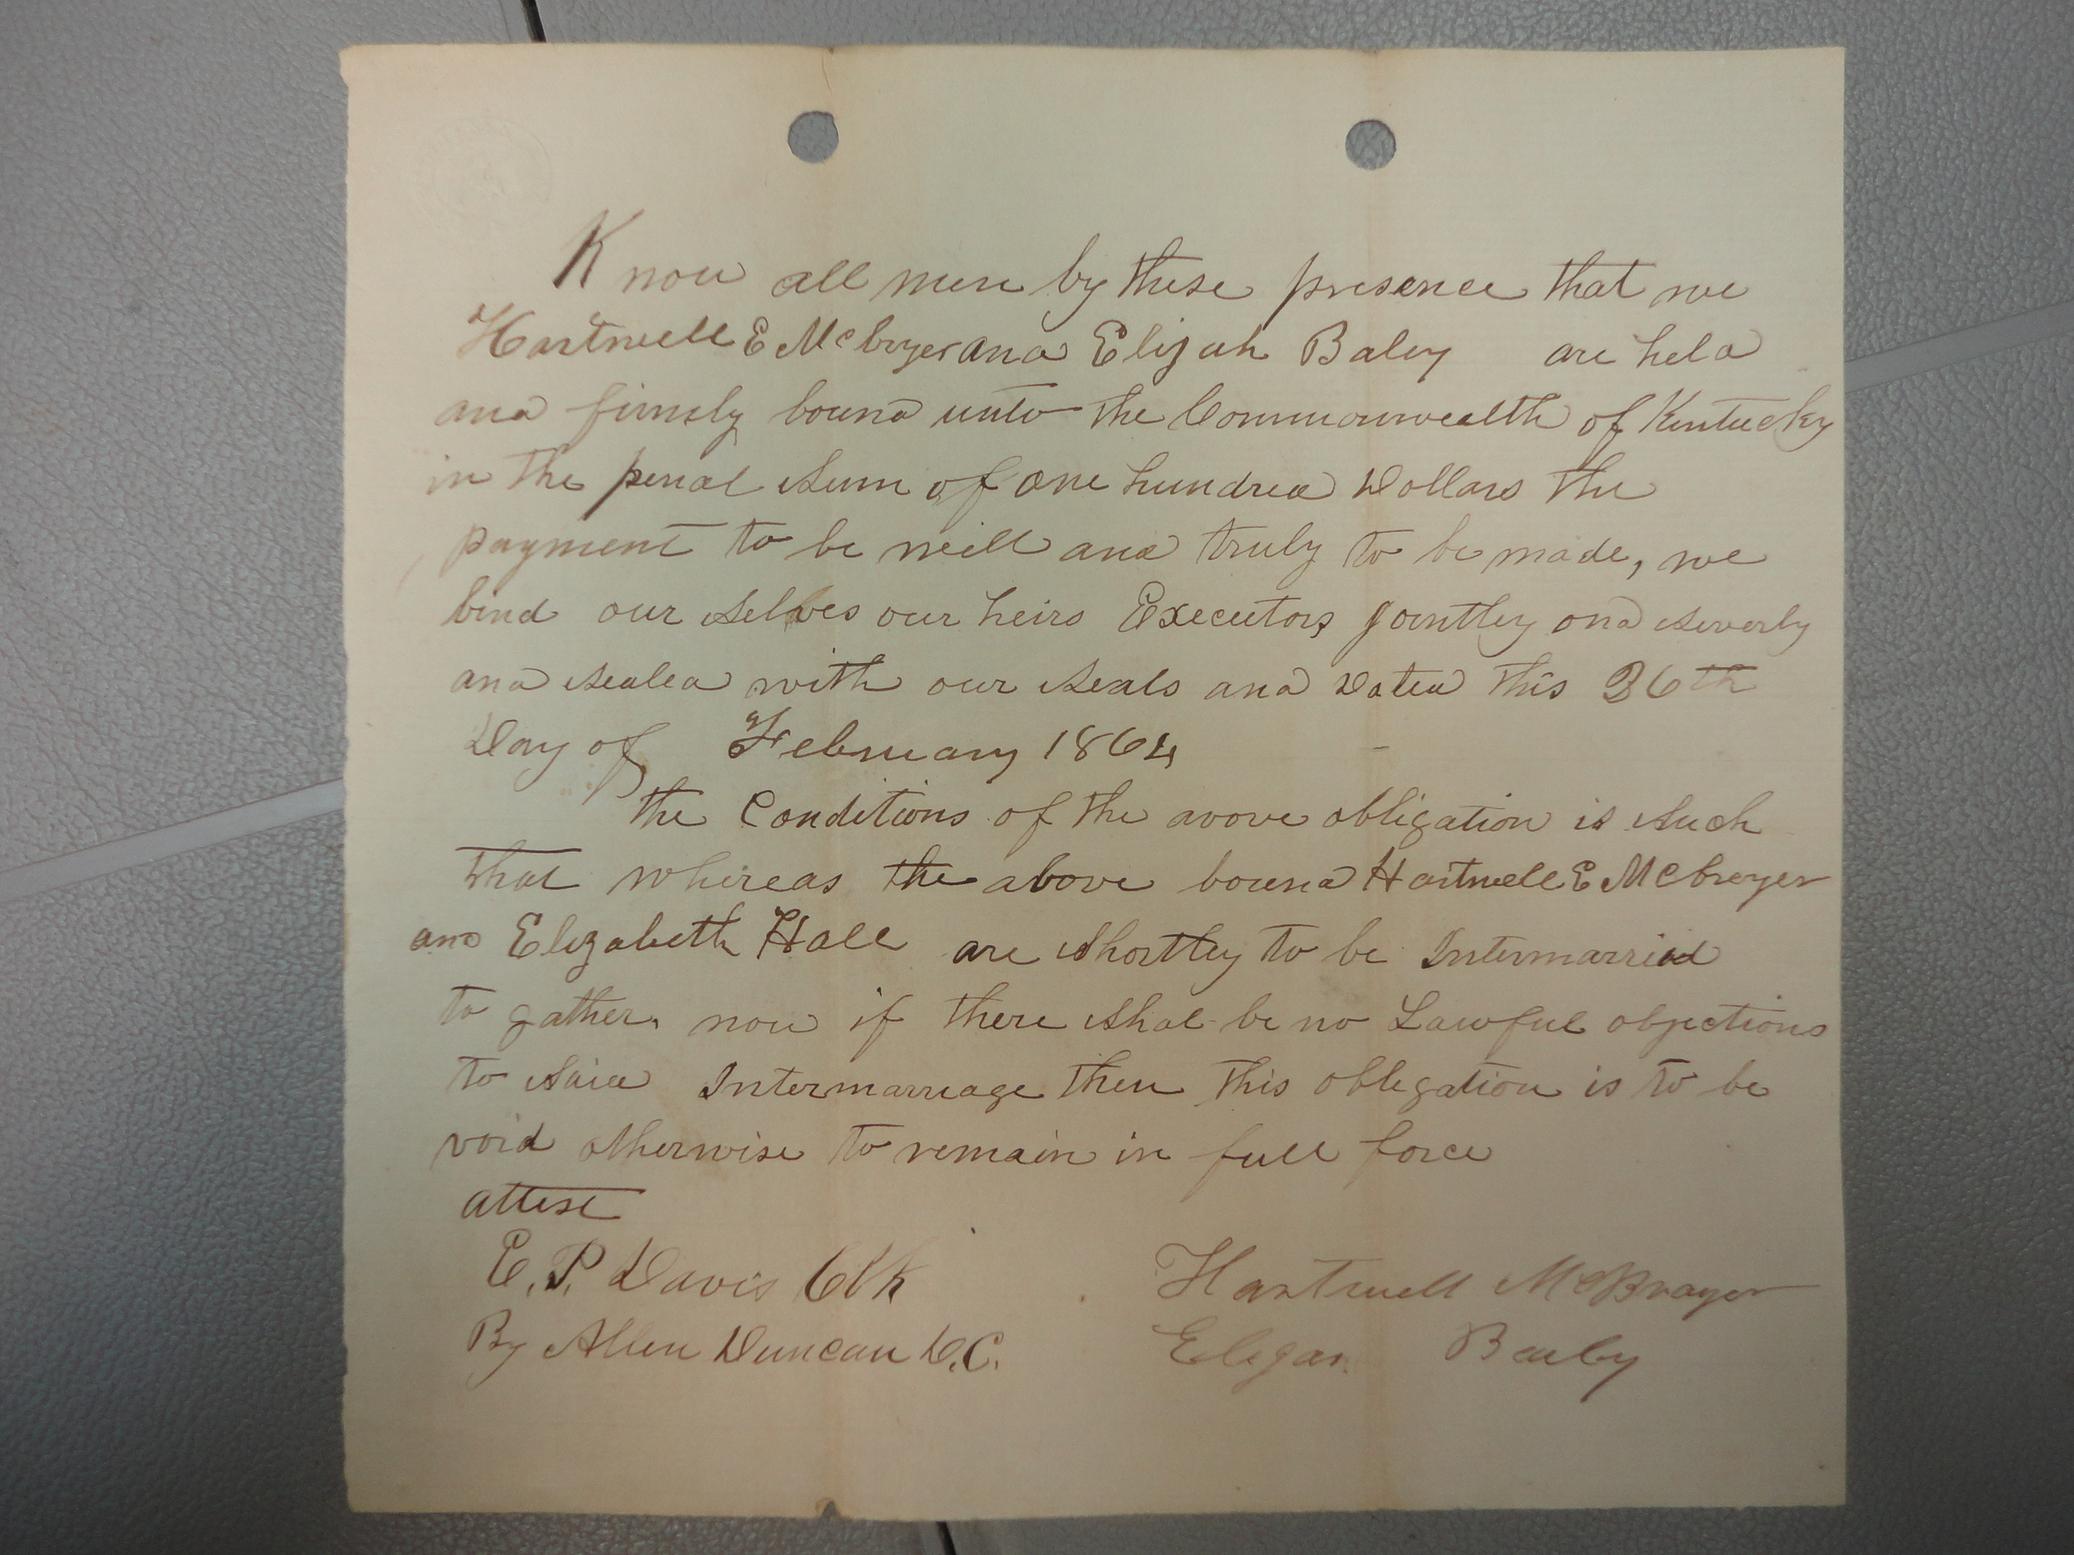 Know all men by these presence that we
Hartwell E McbryerAnd Elijah Baley are held
and firmly bound unto the Commonwealth of Kentucky
in the penal sum of one hundred Dollars the
payment to be well and truly to be made, we
bind our selves our heirs Executors Jointley and severly
and sealed with our seals and Dated this 26th
Day of February 1864
the Conditions of the above obligation is such
that whereas the above bound Hartwell E Mcbreyer
and Elizabeth Hall are shortley to be Intermarried
to gather. now if there shal be no Lawful objections
to said Intermarriage then this obligation is to be
void otherwise to remain in full force
attest
E. P. Davis Clk
Hartwell McBrayer
By Allen Duncan D.C.
Elegar Baily